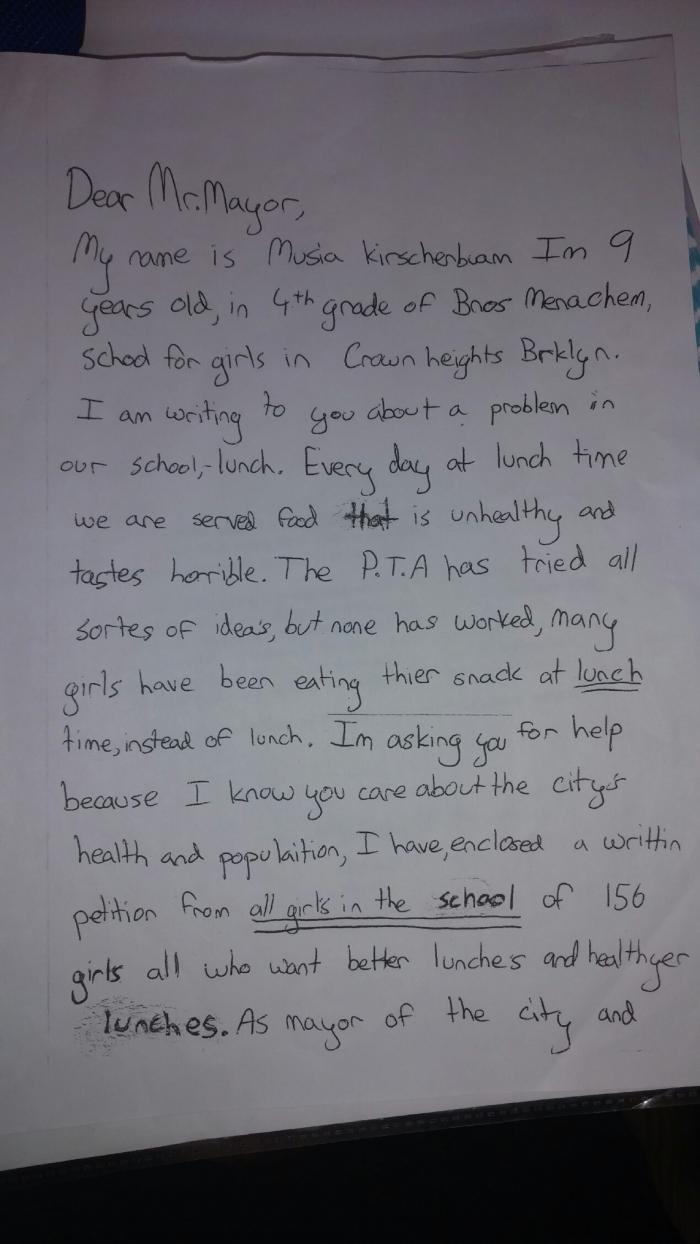 Dear Mr. Mayor,
My name is Musia kirschenbuam Im 9
years old, in 4th grade of Bnos Menachem,
school for girls in Crown heights Brklyn.
I am writing to you about a problem in
our school,-lunch. Every day at lunch time
we are served food that is unhealthy and
tastes horrible. The P.T.A has tried all
sortes of idea's, but none has worked, many
girls have been eating thier snack at lunch
time, instead of lunch. Im asking you for help
because I know you care about the city's
health and populaition, I have, enclosed a writtin
petition from all girls in the school of 156
girls all who want better lunches and healthyer
lunches. As mayor of the city and